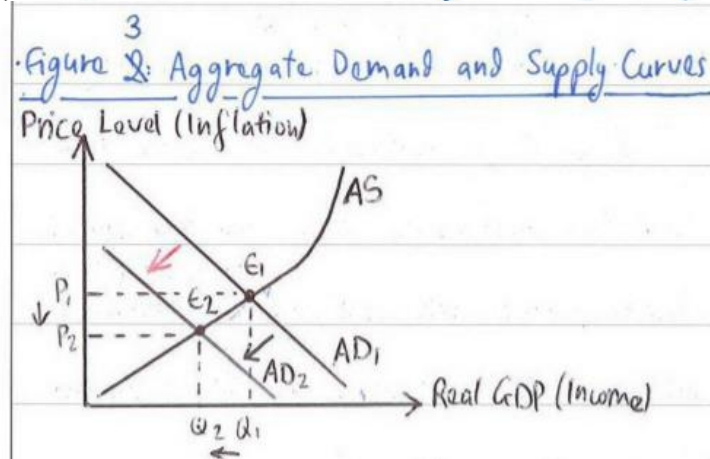 3
Figure 2: Aggregate Demand and Supply Curves
Price Level (Inflation)
AS
E1
P1
E2
P2
AD1
AD2
Real GDP (Income)
Q2 Q1